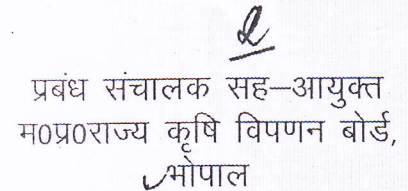 2
प्रबंध संचालक सह–आयुक्त
म0प्र0राज्य कृषि विपणन बोर्ड,
भोपाल